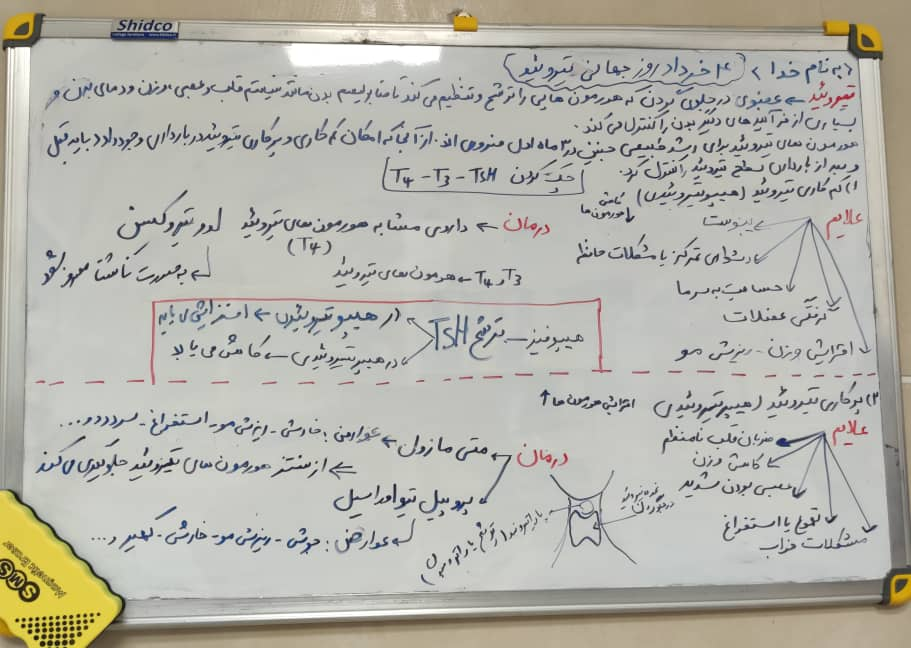 Shidco
«به نام خدا» (۴ خرداد روز جهانی تیروئید)
تیروئید ← عضوی در جلوی گردن که هورمون هایی را ترشح و تنظیم می کند تا متابولیسم بدن مانند سیستم قلب و عصبی، وزن و دمای بدن و
بسیاری از فرآیندهای دیگر بدن را کنترل می کند.
هورمون های تیروئید برای رشد طبیعی جنین در ۳ ماه اول ضروری اند. از آنجا که امکان کم کاری و پرکاری تیروئید در بارداری وجود دارد باید قبل
و بعد از بارداری سطح تیروئید را کنترل کرد.
چک کردن T4 - T3 - TSH
۱) کم کاری تیروئید (هیپوتیروئیدی) کاهش هورمون ها
علایم
یبوست
دشواری تمرکز یا مشکلات حافظه
حساسیت به سرما
گرفتگی عضلات
افزایش وزن - ریزش مو
درمان ← داروی مشابه هورمون های تیروئید لووتیروکسین
(T4)
به صورت ناشتا مصرف شود
T3 و T4 ← هورمون های تیروئید
هیپوفیز ← ترشح TSH
در هیپوتیروئیدی ← افزایش می یابد
در هیپرتیروئیدی ← کاهش می یابد
۲) پرکاری تیروئید (هیپرتیروئیدی) افزایش هورمون ها ↑
علایم
ضربان قلب نامنظم
کاهش وزن
عصبی بودن شدید
تهوع یا استفراغ
مشکلات خواب
درمان
متی مازول ← عوارض: خارش - ریزش مو - استفراغ - سردرد و...
← از سنتز هورمون های تیروئید جلوگیری می کند
پروپیل تیواوراسیل
عوارض: جوش - ریزش مو - خارش - کهیر و...
غده تیروئید
در جلوی گردن
SMS
Magnetic Eraser